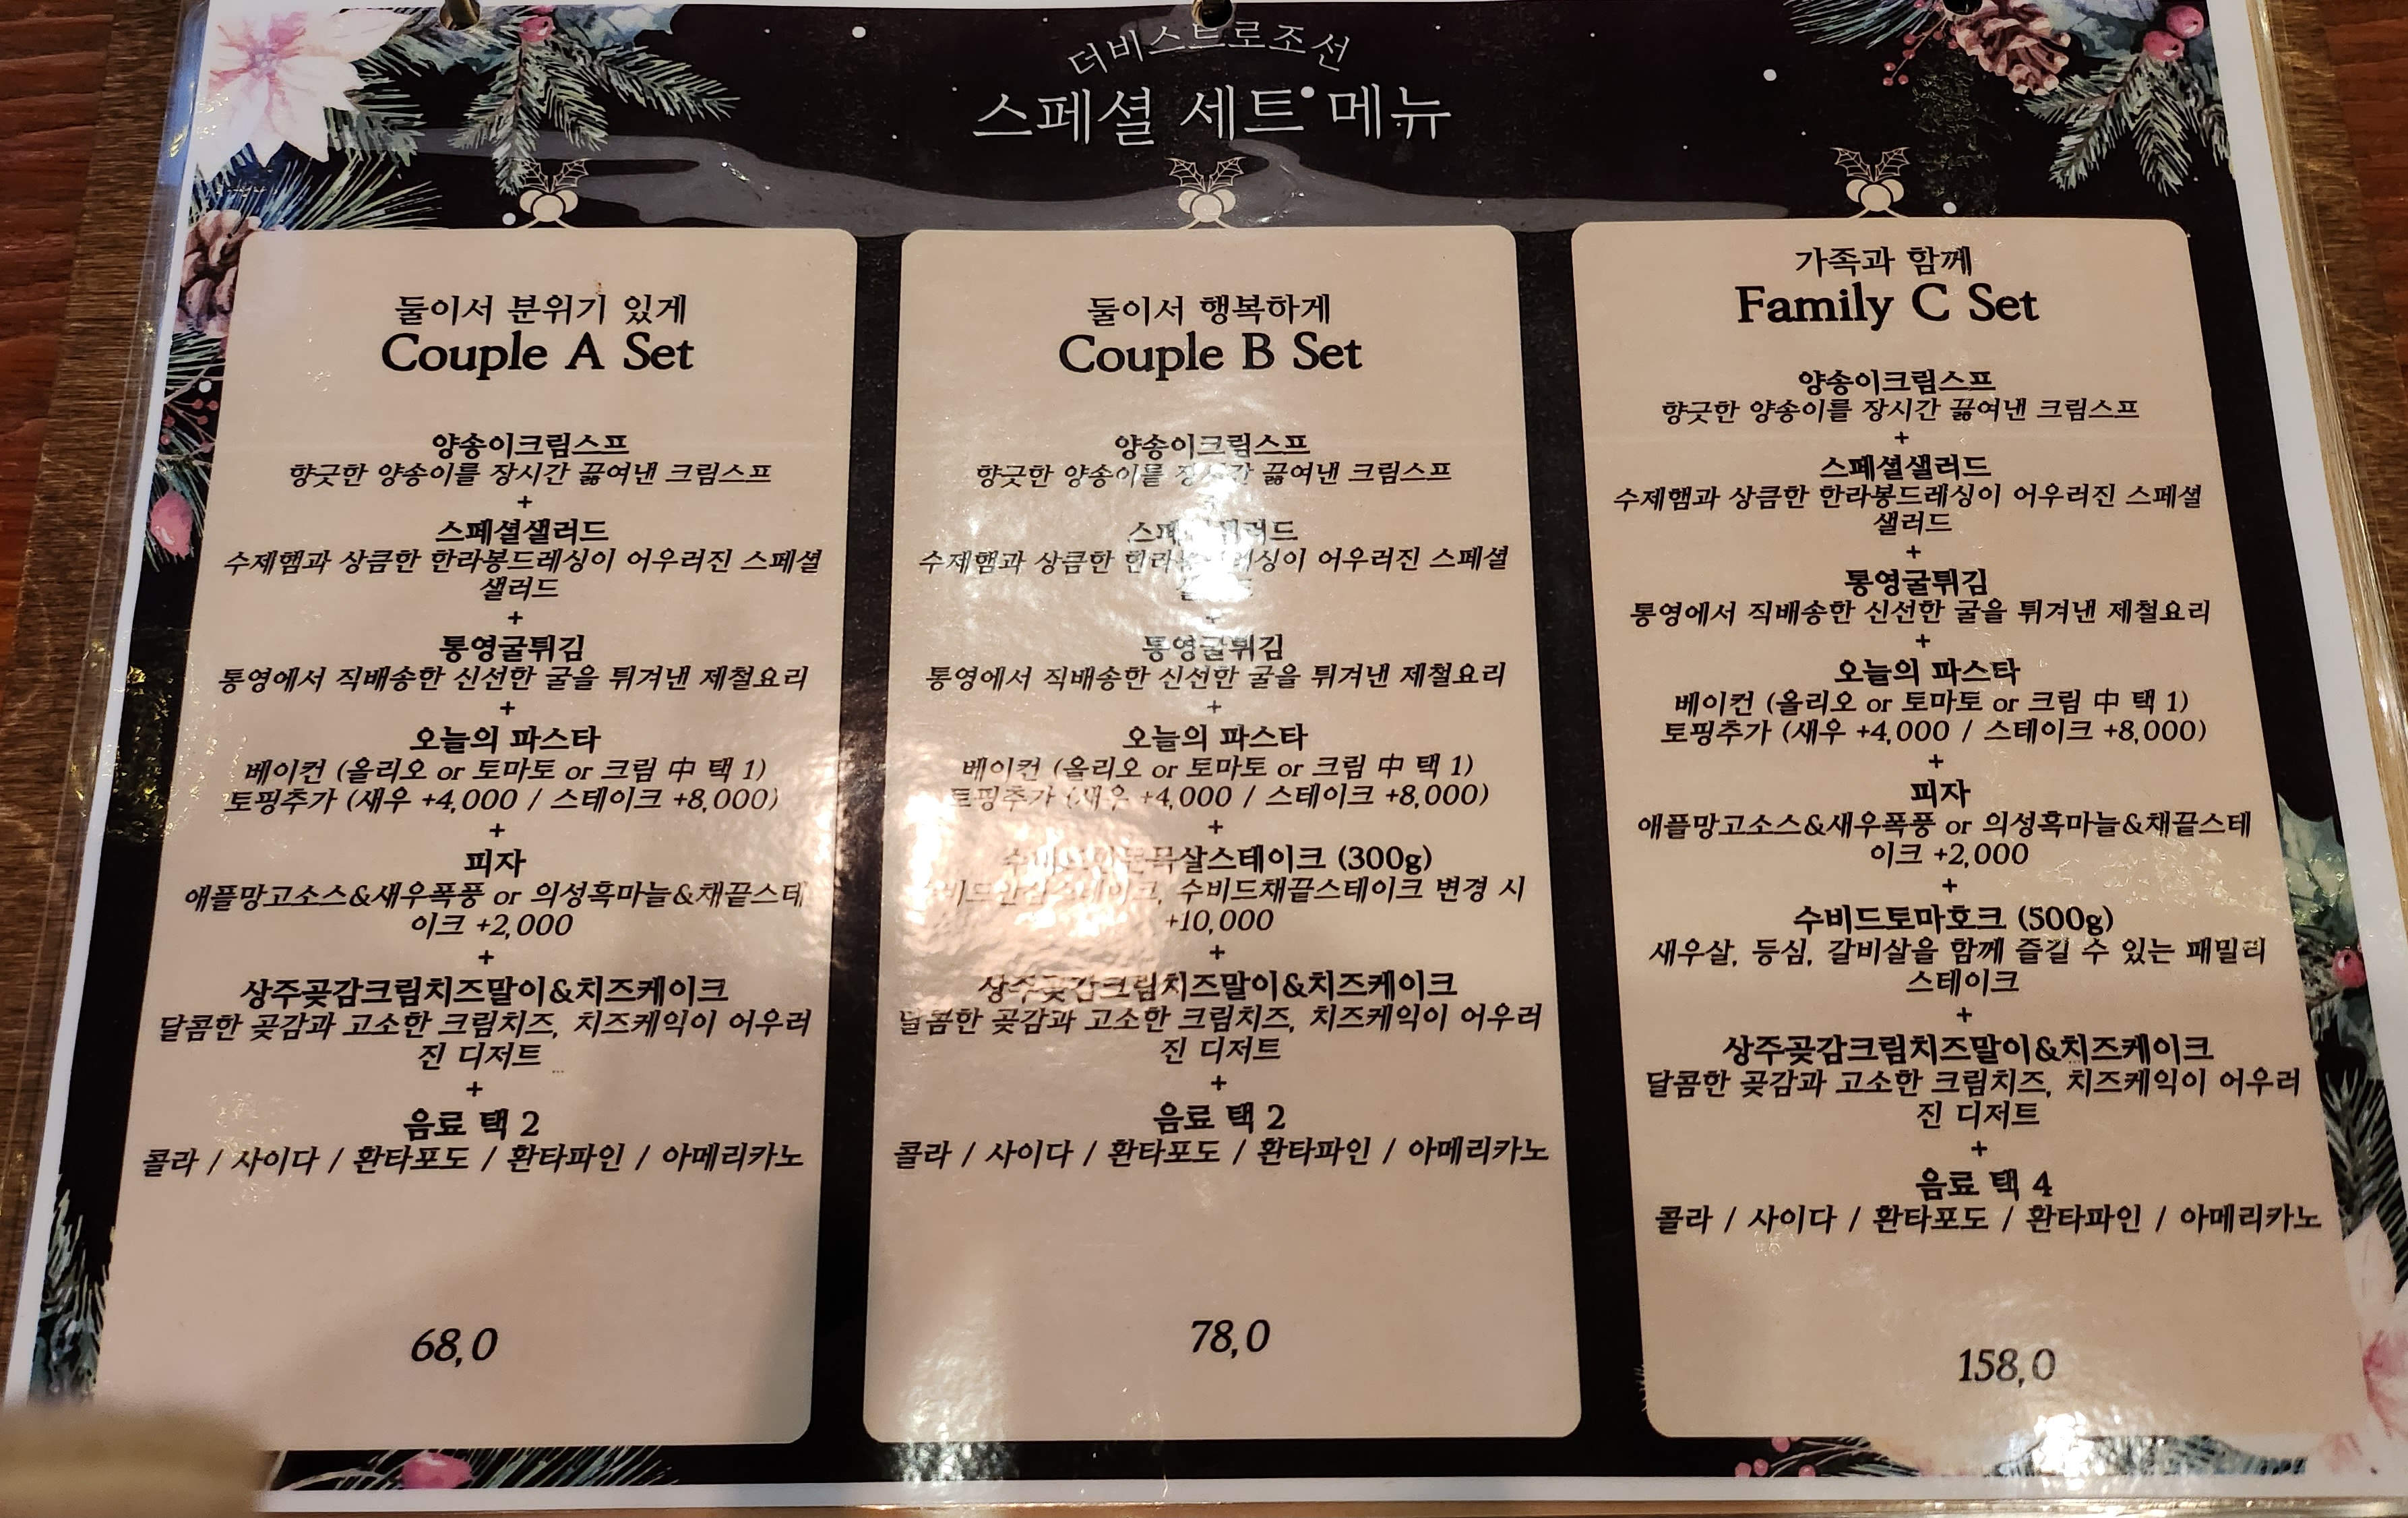 더비스트로조선
스페셜 세트 메뉴
둘이서 분위기 있게
Couple A Set
양송이크림스프
향긋한 양송이를 장시간 끓여낸 크림스프
+
스페셜샐러드
수제햄과 상큼한 한라봉드레싱이 어우러진 스페셜
샐러드
+
통영굴튀김
통영에서 직배송한 신선한 굴을 튀겨낸 제철요리
+
오늘의 파스타
베이컨 (올리오 or 토마토 or 크림 中 택 1)
토핑추가 (새우 +4,000 / 스테이크 +8,000)
+
피자
애플망고소스&새우폭풍 or 의성흑마늘&채끝스테
이크 +2,000
+
상주곶감크림치즈말이&치즈케이크
달콤한 곶감과 고소한 크림치즈, 치즈케익이 어우러
진 디저트
+
음료 택 2
콜라 / 사이다 / 환타포도 / 환타파인 / 아메리카노
68,0
둘이서 행복하게
Couple B Set
양송이크림스프
향긋한 양송이를 장시간 끓여낸 크림스프
+
스페셜샐러드
수제햄과 상큼한 한라봉드레싱이 어우러진 스페셜
샐러드
+
통영굴튀김
통영에서 직배송한 신선한 굴을 튀겨낸 제철요리
+
오늘의 파스타
베이컨 (올리오 or 토마토 or 크림 中 택 1)
토핑추가 (새우 +4,000 / 스테이크 +8,000)
+
(300g)
수비드채끝스테이크 변경 시
+10,000
+
상주곶감크림치즈말이&치즈케이크
달콤한 곶감과 고소한 크림치즈, 치즈케익이 어우러
진 디저트
+
음료 택 2
콜라 / 사이다 / 환타포도 / 환타파인 / 아메리카노
78,0
가족과 함께
Family C Set
양송이크림스프
향긋한 양송이를 장시간 끓여낸 크림스프
+
스페셜샐러드
수제햄과 상큼한 한라봉드레싱이 어우러진 스페셜
샐러드
+
통영굴튀김
통영에서 직배송한 신선한 굴을 튀겨낸 제철요리
+
오늘의 파스타
베이컨 (올리오 or 토마토 or 크림 中 택 1)
토핑추가 (새우 +4,000 / 스테이크 +8,000)
+
피자
애플망고소스&새우폭풍 or 의성흑마늘&채끝스테
이크 +2,000
+
수비드토마호크 (500g)
새우살, 등심, 갈비살을 함께 즐길 수 있는 패밀리
스테이크
+
상주곶감크림치즈말이&치즈케이크
달콤한 곶감과 고소한 크림치즈, 치즈케익이 어우러
진 디저트
+
음료 택 4
콜라 / 사이다 / 환타포도 / 환타파인 / 아메리카노
158,0